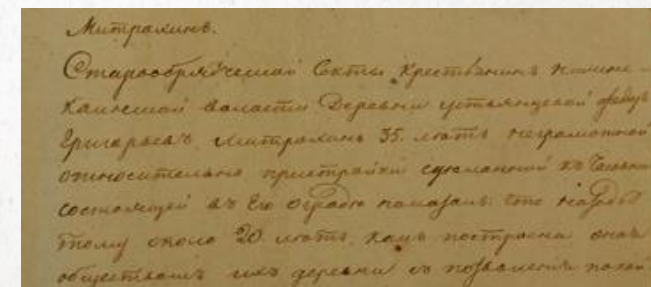 Митрахинъ.
Старообрядческой Секты Крестьянинъ
волости Деревни Устьянцевой Федоръ
Григорьевъ Митрахинъ 35. летъ неграмотной
относительно пристройки сделанной къ Часовне
состоящей въ Его ограде показалъ: что назадъ
тому около 20 летъ, какъ построена оная
обществомъ ихъ деревни съ позволения